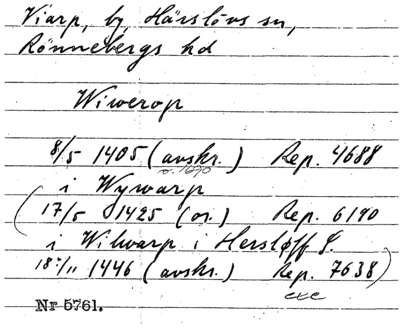 Viarp, by, Härslövs sn,
Rönnebergs hd
Wiwerop
8/5 1405 (avskr.) Rep. 4688
i Wywarp
(17/5 1425 (or.) Rep. 6190
i Wilwarp i Hersløff S.
18/11 1446 (avskr.) Rep. 7638)
Nr 5761.